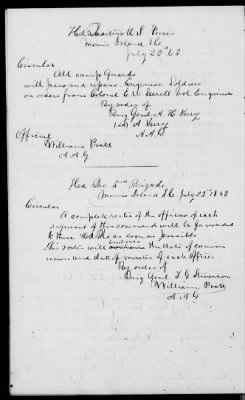 Hd Quarters U.S. Forces
Morris Island S.C.
July 22d 63
Circular
All camp Guards
will pass and repass Engineer Soldiers
on orders from Colonel E W Serrell Vol Engineers
By order of
Brig Genl A. H. Terry
A. Terry
A.A.G.
Official
William Pratt
A A G
Hd Qrs 2nd Brigade
Morris Island S.C. July 22d 1863
Circular
A complete roster of the officers of each
regiment of this command will be forwarded
to these Hd Qrs as soon as possible
This roster will embrace the date of commis
sion and date of muster of each officer
By order of
Brig Genl T G Stevenson
William Pratt
A A G